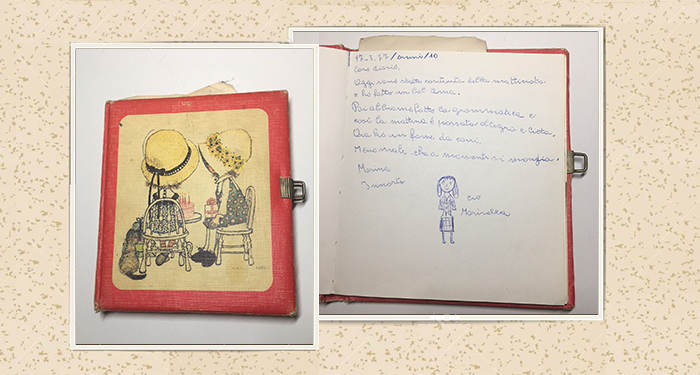 17-1-77/anni/10
Caro diario,
Oggi sono stata contenta della mattinata
e ho fatto un bel tema.
Poi abbiamo fatto la grammatica e
così la mattina è passata allegra e lieta.
Ora ho un fame da cani.
Meno male che a momenti si mangia.
Marina
cio